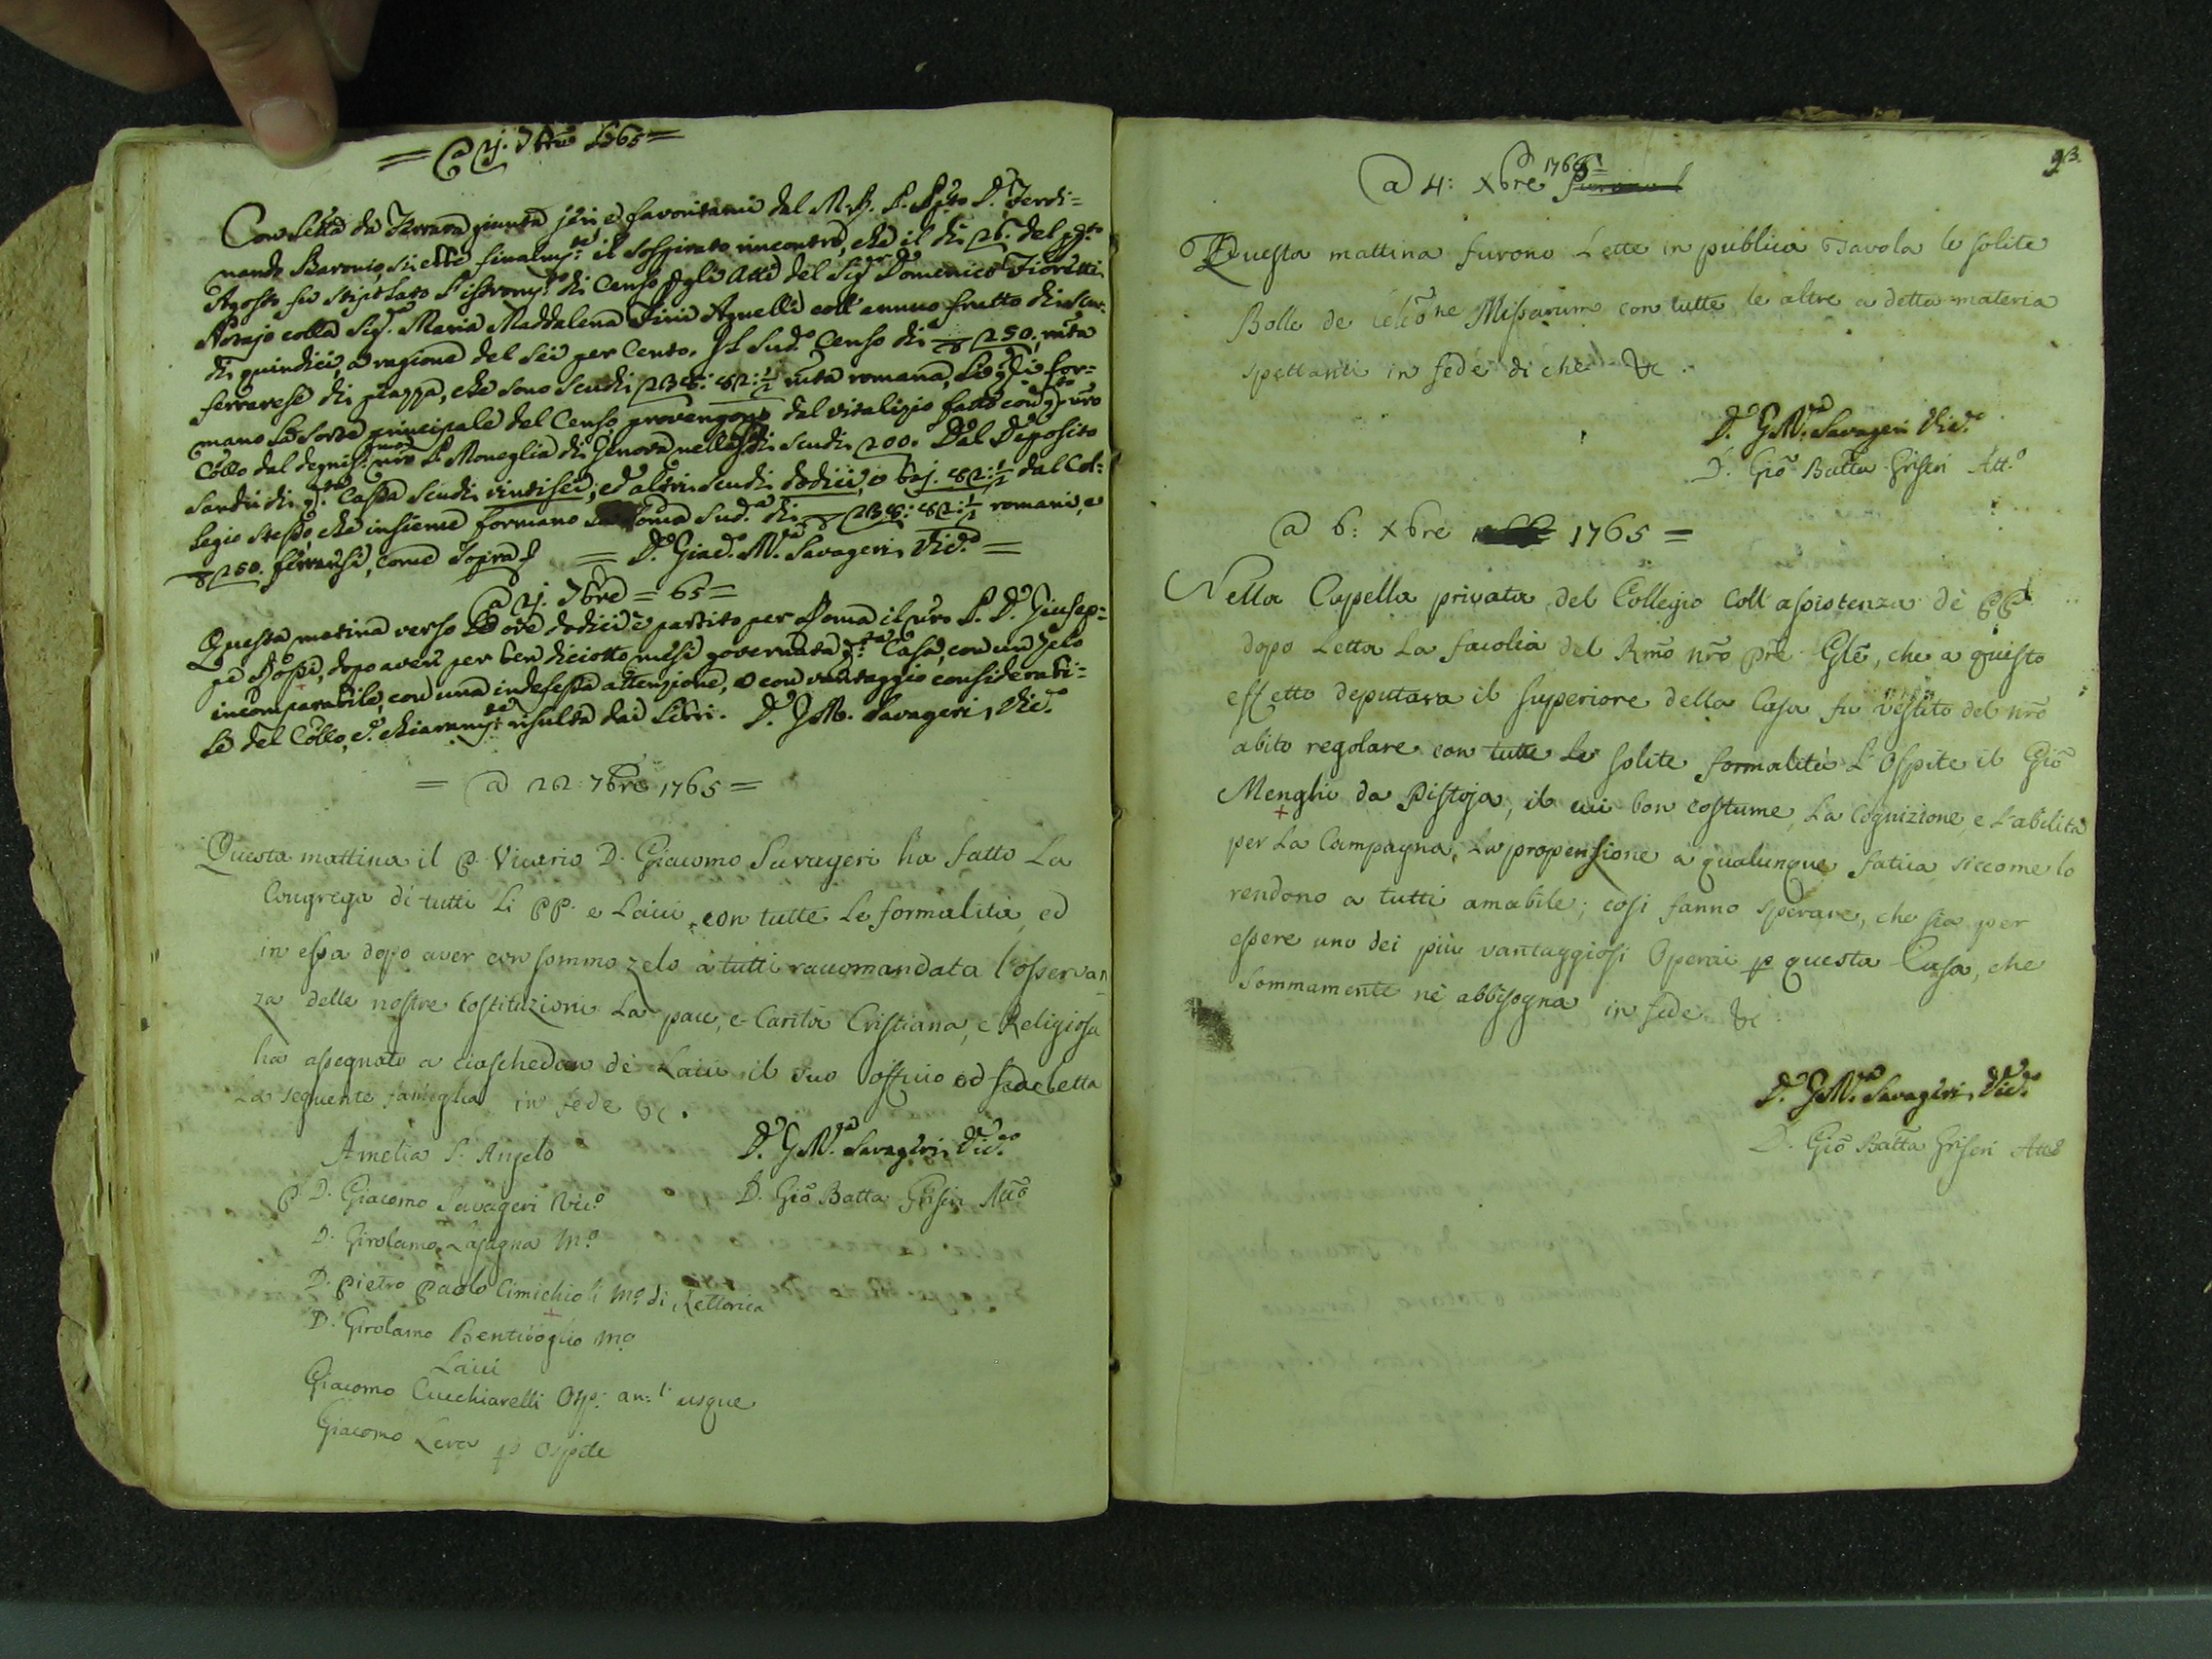 = A 2j. 7bre 1765 =
Con lettã da Ferrara giunta jeri, e favoritami dal M. R. P. Pp̃to D. Ferdi=
nando Baronio, si ebbe finalm.te il sospirato rincontro, che il di 26. del pp.to
Agosto fu stipulato l'istrom.to di Censo p gli atti del Sig.r Domenico Fioretti
Notajo colla Sig.ra Maria Maddalena Agnelli coll'annuo frutto di scu:
di quindici, a ragione del sei per cento. Il sud.o Censo di 250: mta
ferrarese di piazza, che sono scudi 238: 82:½ mta romana, li q.li for=
mano la sorte principale del Censo, provengono dal vitalizio fatto con q.to nr̃o
Cõllo dal degniss.mo nr̃o P. Moneglia di Genova nella di scudi 200. Dal Deposito
di q.ta Cassa scudi vintisei, ed altri scudi dodici, e baj. 82:½ dal Col:
legio stesso, che insieme formano la soma sud.a di 238: 82:½ romani, e
250. ferraresi, come sopra = D. Giac.o M.a Savageri Vic.o =
A 2j. 7bre = 65 =
Questa matina verso le ore dodici è partito per Roma il nr̃o P. D. Giusep=
pe Rossi, dopo aver per ben diciotto mesi governata q.ta Casa, con un zelo
incomparabile, con una indefessa attenzione, e con vantaggio considerabi=
le del Cõllo, e chiaram.te risulta dai Libri. D. G. M. Savageri, Vic.o
= A 22: 7bre 1765 =
Questa mattina il P. Vicario D. Giacomo Savageri ha fatto La
Congrega di tutti Li PP. e Laici, con tutte Le formalità, ed
in essa dopo aver con sommo zelo à tutti raccomandata l'osservan
za delle nostre Costituzioni La pace, e Carità Cristiana, e Religiosa
ha assegnato a ciaschedun dè Laici il suo officio ed letta
La seguente famiglia in fede &c.
Amelia S. Angelo D. G. M.a Savageri, Vic.o
P D. Giacomo Savageri Vic.o D. Giõ Batta Griseri Att.o
D. Girolamo Lasagna M.o
D. Pietro Paolo Cimichioli M.o di Rettorica
D. Girolamo Bentivoglio M.o
Laici
Giacomo Cucchiarelli Osp: an: usque
Giacomo Leva Ospite
93.
A 4: Xbre 1765 =
Questa mattina furono Lette in publica Tavola le solite
Bolle de Celeõne Missarum con tutte le altre a detta materia
spettanti in fede di che &c.
D. G. M.a Savageri Vic.o
D. Giõ Batta Griseri Att.o
A 6: Xbre 1765 =
Nella Capella privata del Collegio coll'assistenza dè PP.
dopo Letta La facoltà del Rmõ nr̃o Prẽ Glẽ, che a questo
effetto deputava il Superiore della Casa fu vestito del nr̃o
abito regolare con tutte le solite formalità L'Ospite il Giõ
Menghi da Pistoja, il cui bon costume, La Cognizione, e L'abilità
per La Campagna, La propensione a qualunque fatica siccome lo
rendono a tutti amabile; così fanno sperare, che sia per
essere uno dei più vantaggiosi Operai p questa Casa, che
sommamente nè abbisogna in fede &c.
D. G. M.a Savageri, Vic.o
D. Giõ Batta Griseri Att.o